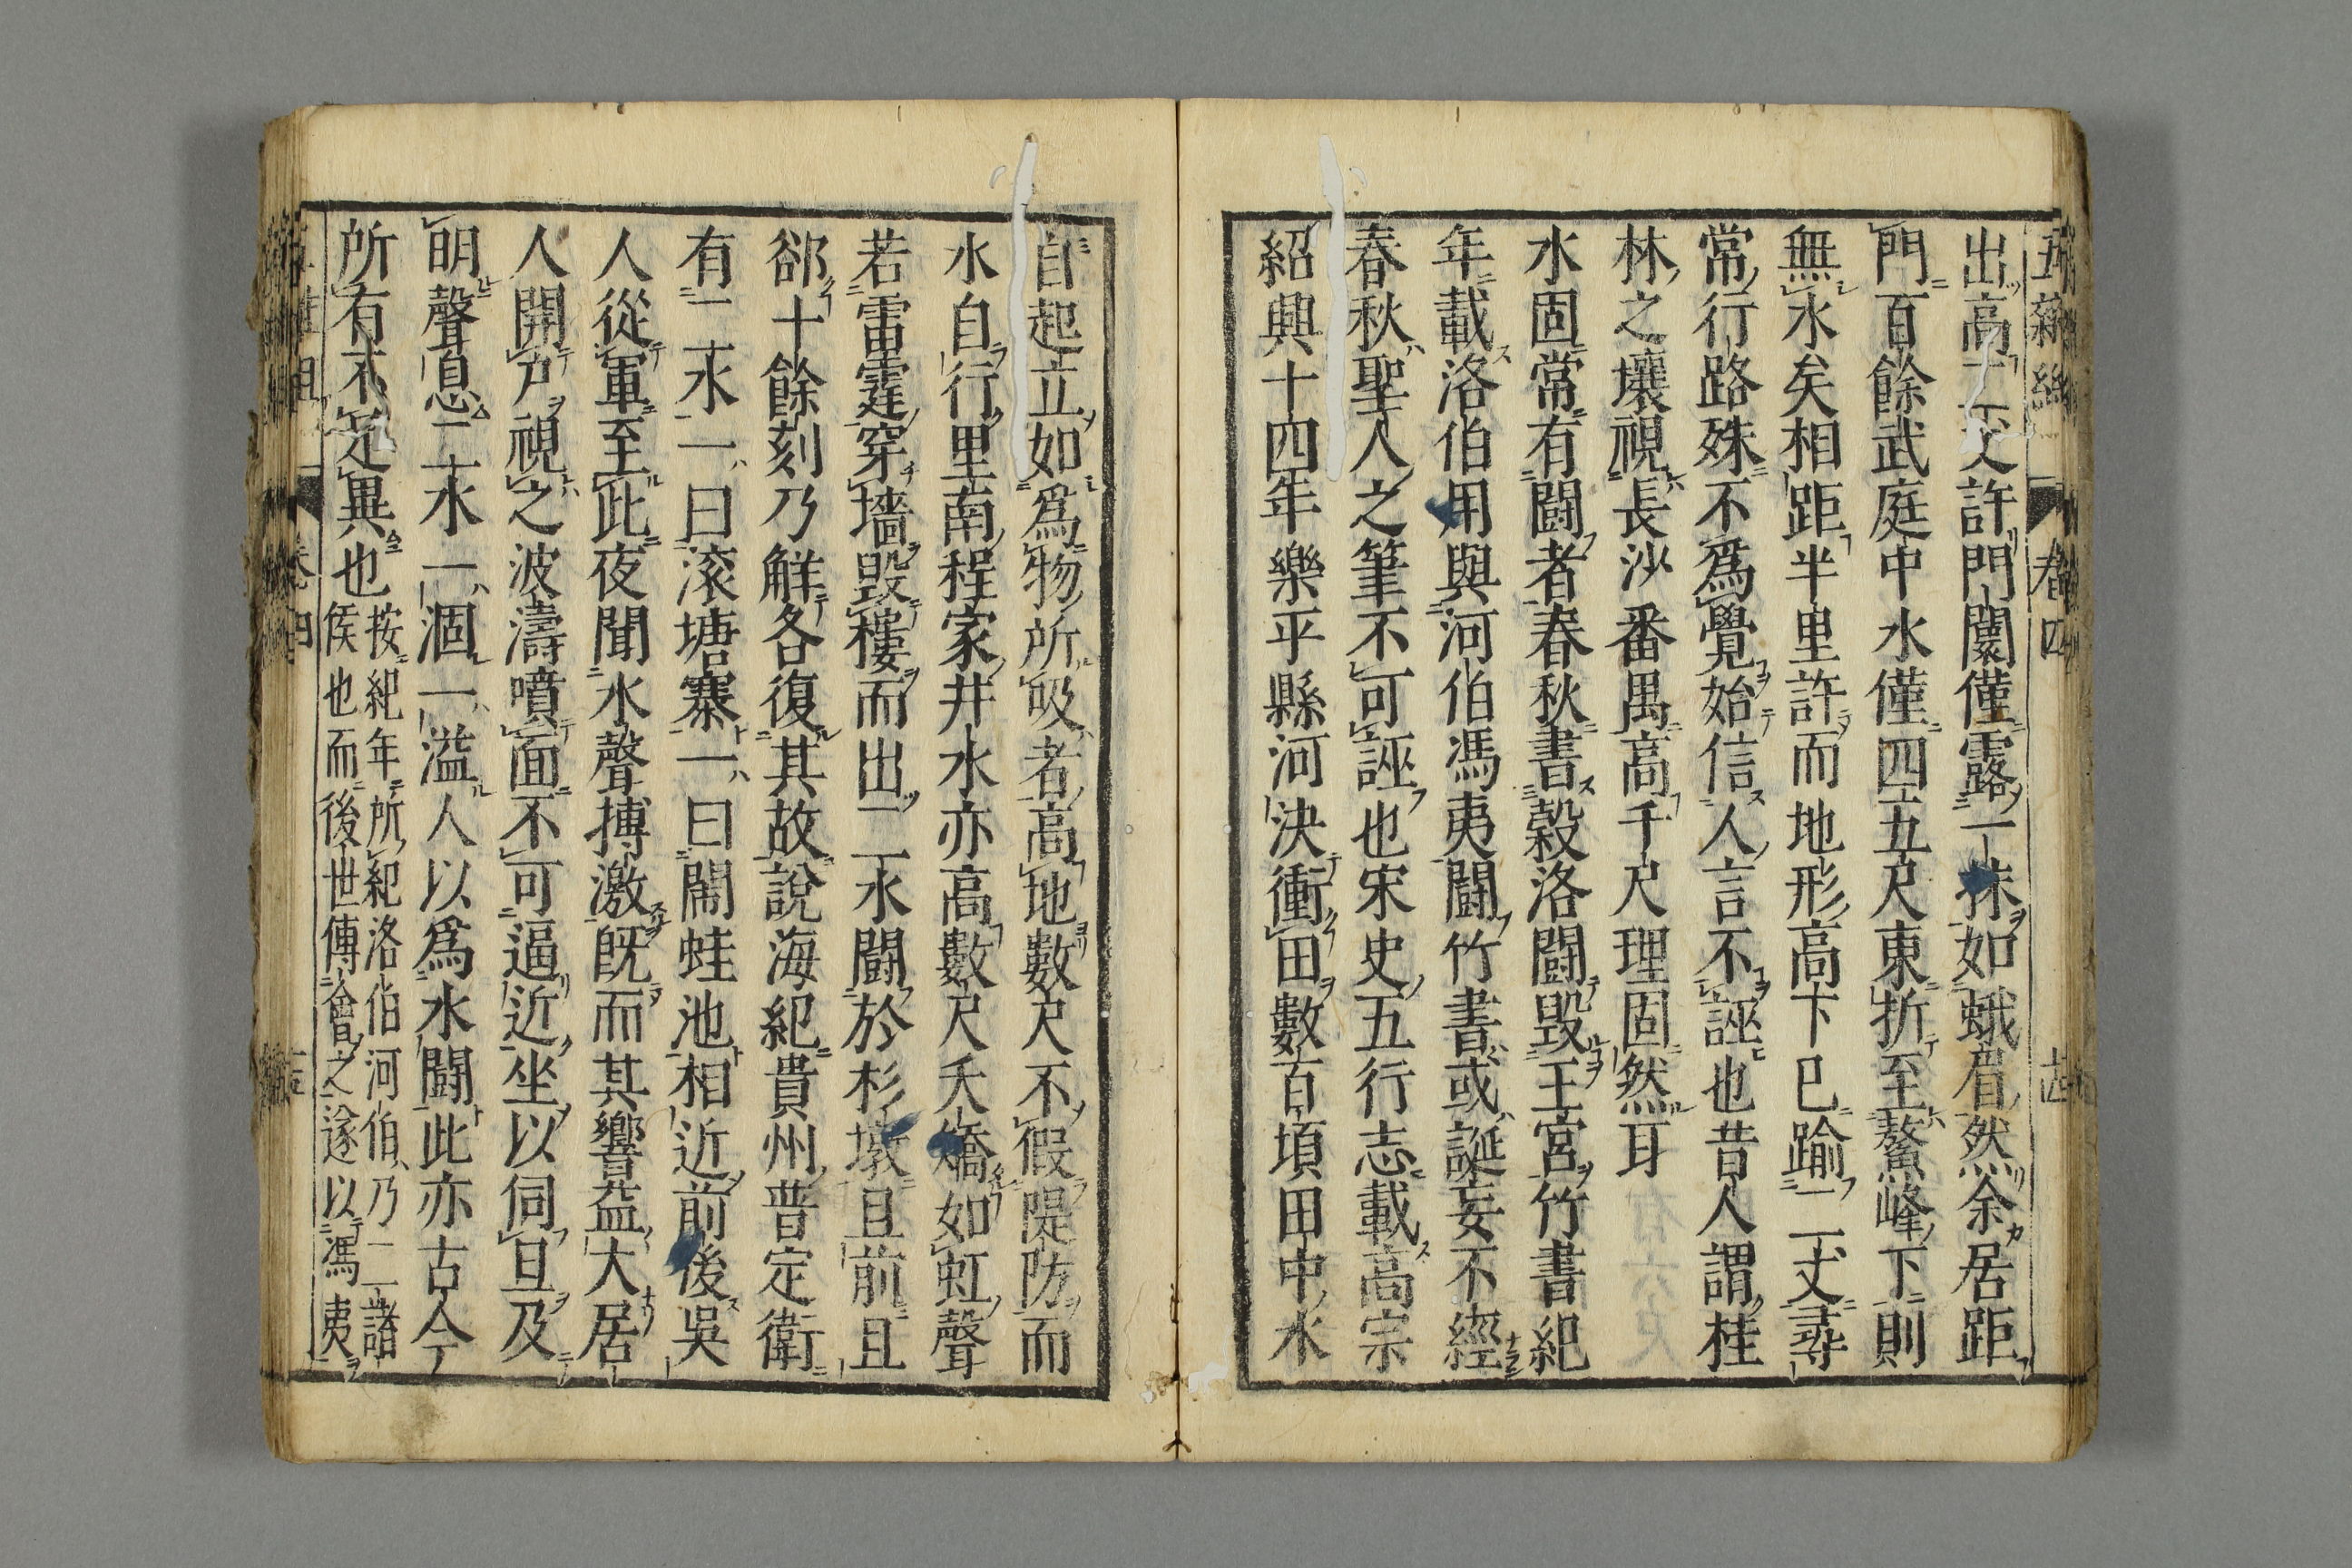 五雜組 卷四
出高丈許門闑僅露一抹如蛾眉然余居距
門百餘武庭中水僅四五尺東折至鰲峰下則
無水矣相距半里許而地形高下已踰二丈尋
常行路殊不爲覺始信人言不誣也昔人謂桂
林之壤視長沙番禺高千尺理固然耳
水固常有闘者春秋書穀洛闘毀王宮竹書紀
年載洛伯用與河伯馮夷闘竹書或誕妄不經
春秋聖人之筆不可誣也宋史五行志載高宗
紹興十四年樂平縣河決衝田數百頃田中水
自起立如爲物所吸者高地數尺不假隄防而
水自行里南程家井水亦高數尺夭矯如虹聲
若雷霆穿墻毀樓而出二水闘於杉墩且前且
郤十餘刻乃解各復其故說海紀貴州普定衛
有二水一曰滚塘寨一曰閙蛙池相近前後吳
人從軍至此夜聞水聲搏激既而其響益大居
人開戸視之波濤噴面不可逼近坐以伺旦及
明聲息二水一涸一溢人以爲水闘此亦古今
所有不足異也
按紀年所紀洛伯河伯乃二諸
侯也而後世傅會之遂以馮夷
卷四